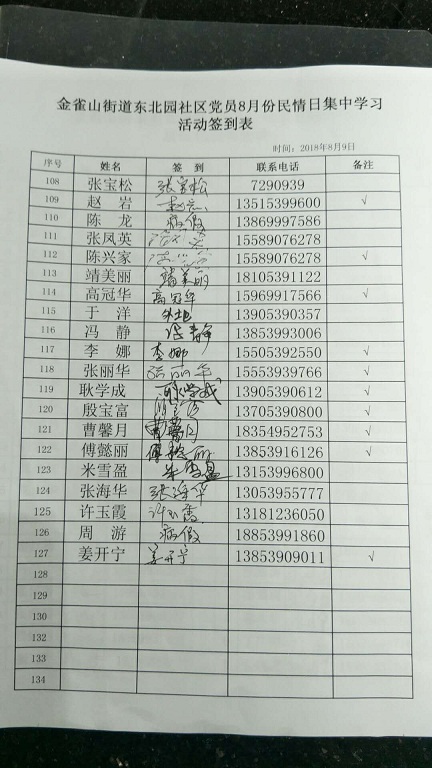 金雀山街道东北园社区党员8月份民情日集中学习
活动签到表
时间：2018年8月9日
序号 姓名 签到 联系电话 备注
108 张宝松 张宝松 7290939
109 赵岩 赵岩 13515399600 √
110 陈龙 病假 13869997586
111 张凤英 15589076278
112 陈兴家 15589076278 √
113 靖美丽 靖美丽 18105391122
114 高冠华 高冠华 15969917566 √
115 于洋 外地 13905390357
116 冯静 冯静 13853993006
117 李娜 李娜 15505392550 √
118 张丽华 张丽华 15553939766 √
119 耿学成 耿学成 13905390612 √
120 殷宝富 13705390800 √
121 曹馨月 曹馨月 18354952753 √
122 傅懿丽 傅懿丽 13853916126 √
123 米雪盈 米雪盈 13153996800
124 张海华 张海华 13053955777
125 许玉霞 许玉霞 13181236050
126 周游 病假 18853991860
127 姜开宁 姜开宁 13853909011 √
128
129
130
132
133
134